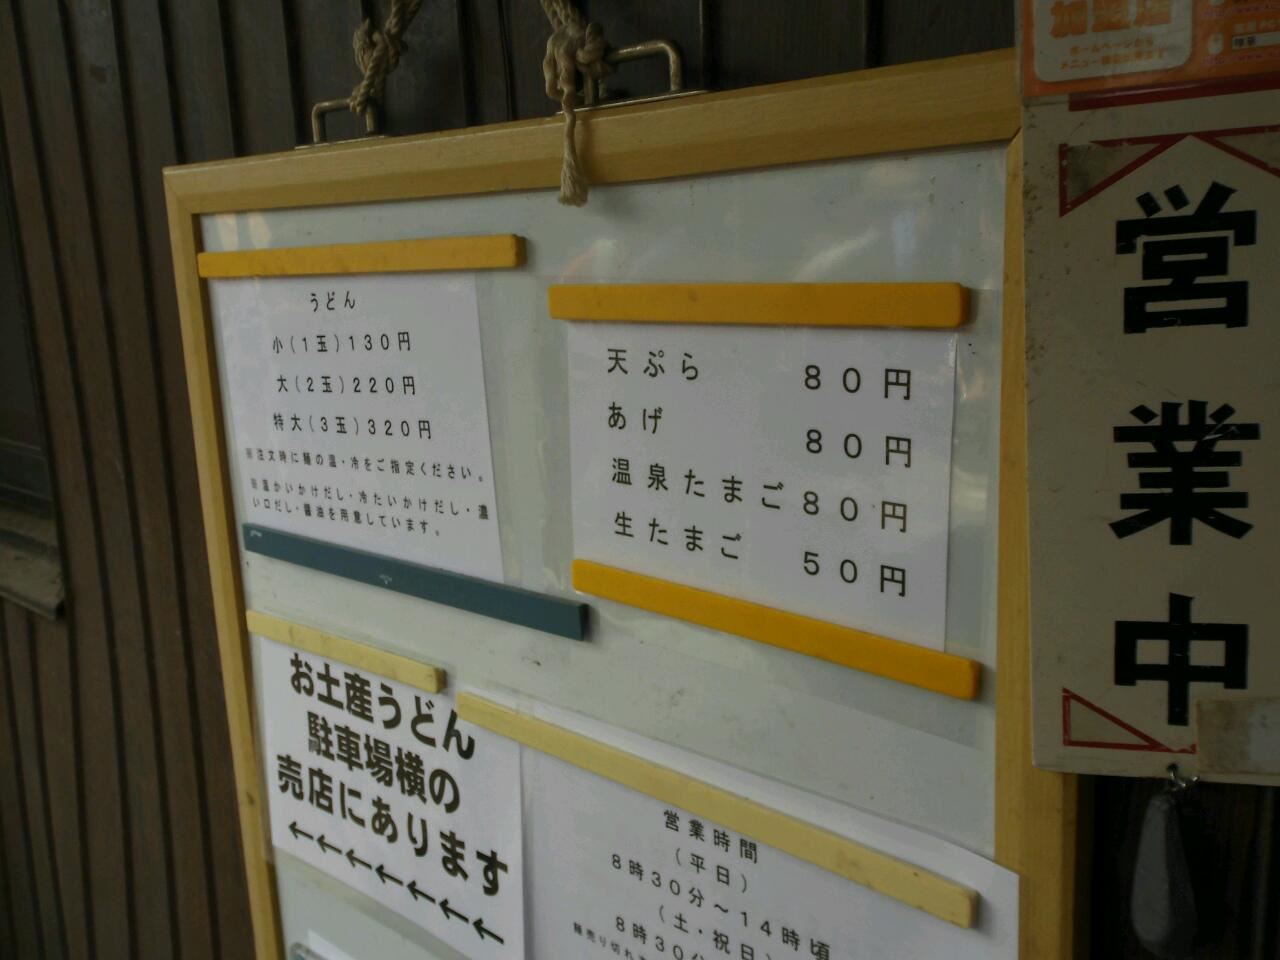 うどん
小(1玉)130円
大(2玉)220円
特大(3玉)320円
※注文時に麺の温・冷をご指定ください。
※温かいかけだし・冷たいかけだし・濃
い口だし・醤油を用意しています。
天ぷら 80円
あげ 80円
温泉たまご80円
生たまご 50円
お土産うどん
駐車場横の
売店にあります
←←←←←←←
営業時間
(平日)
8時30分~14時頃
(土・祝日)
8時30分
麺売り切れ
営業中
加盟店
ホームページから